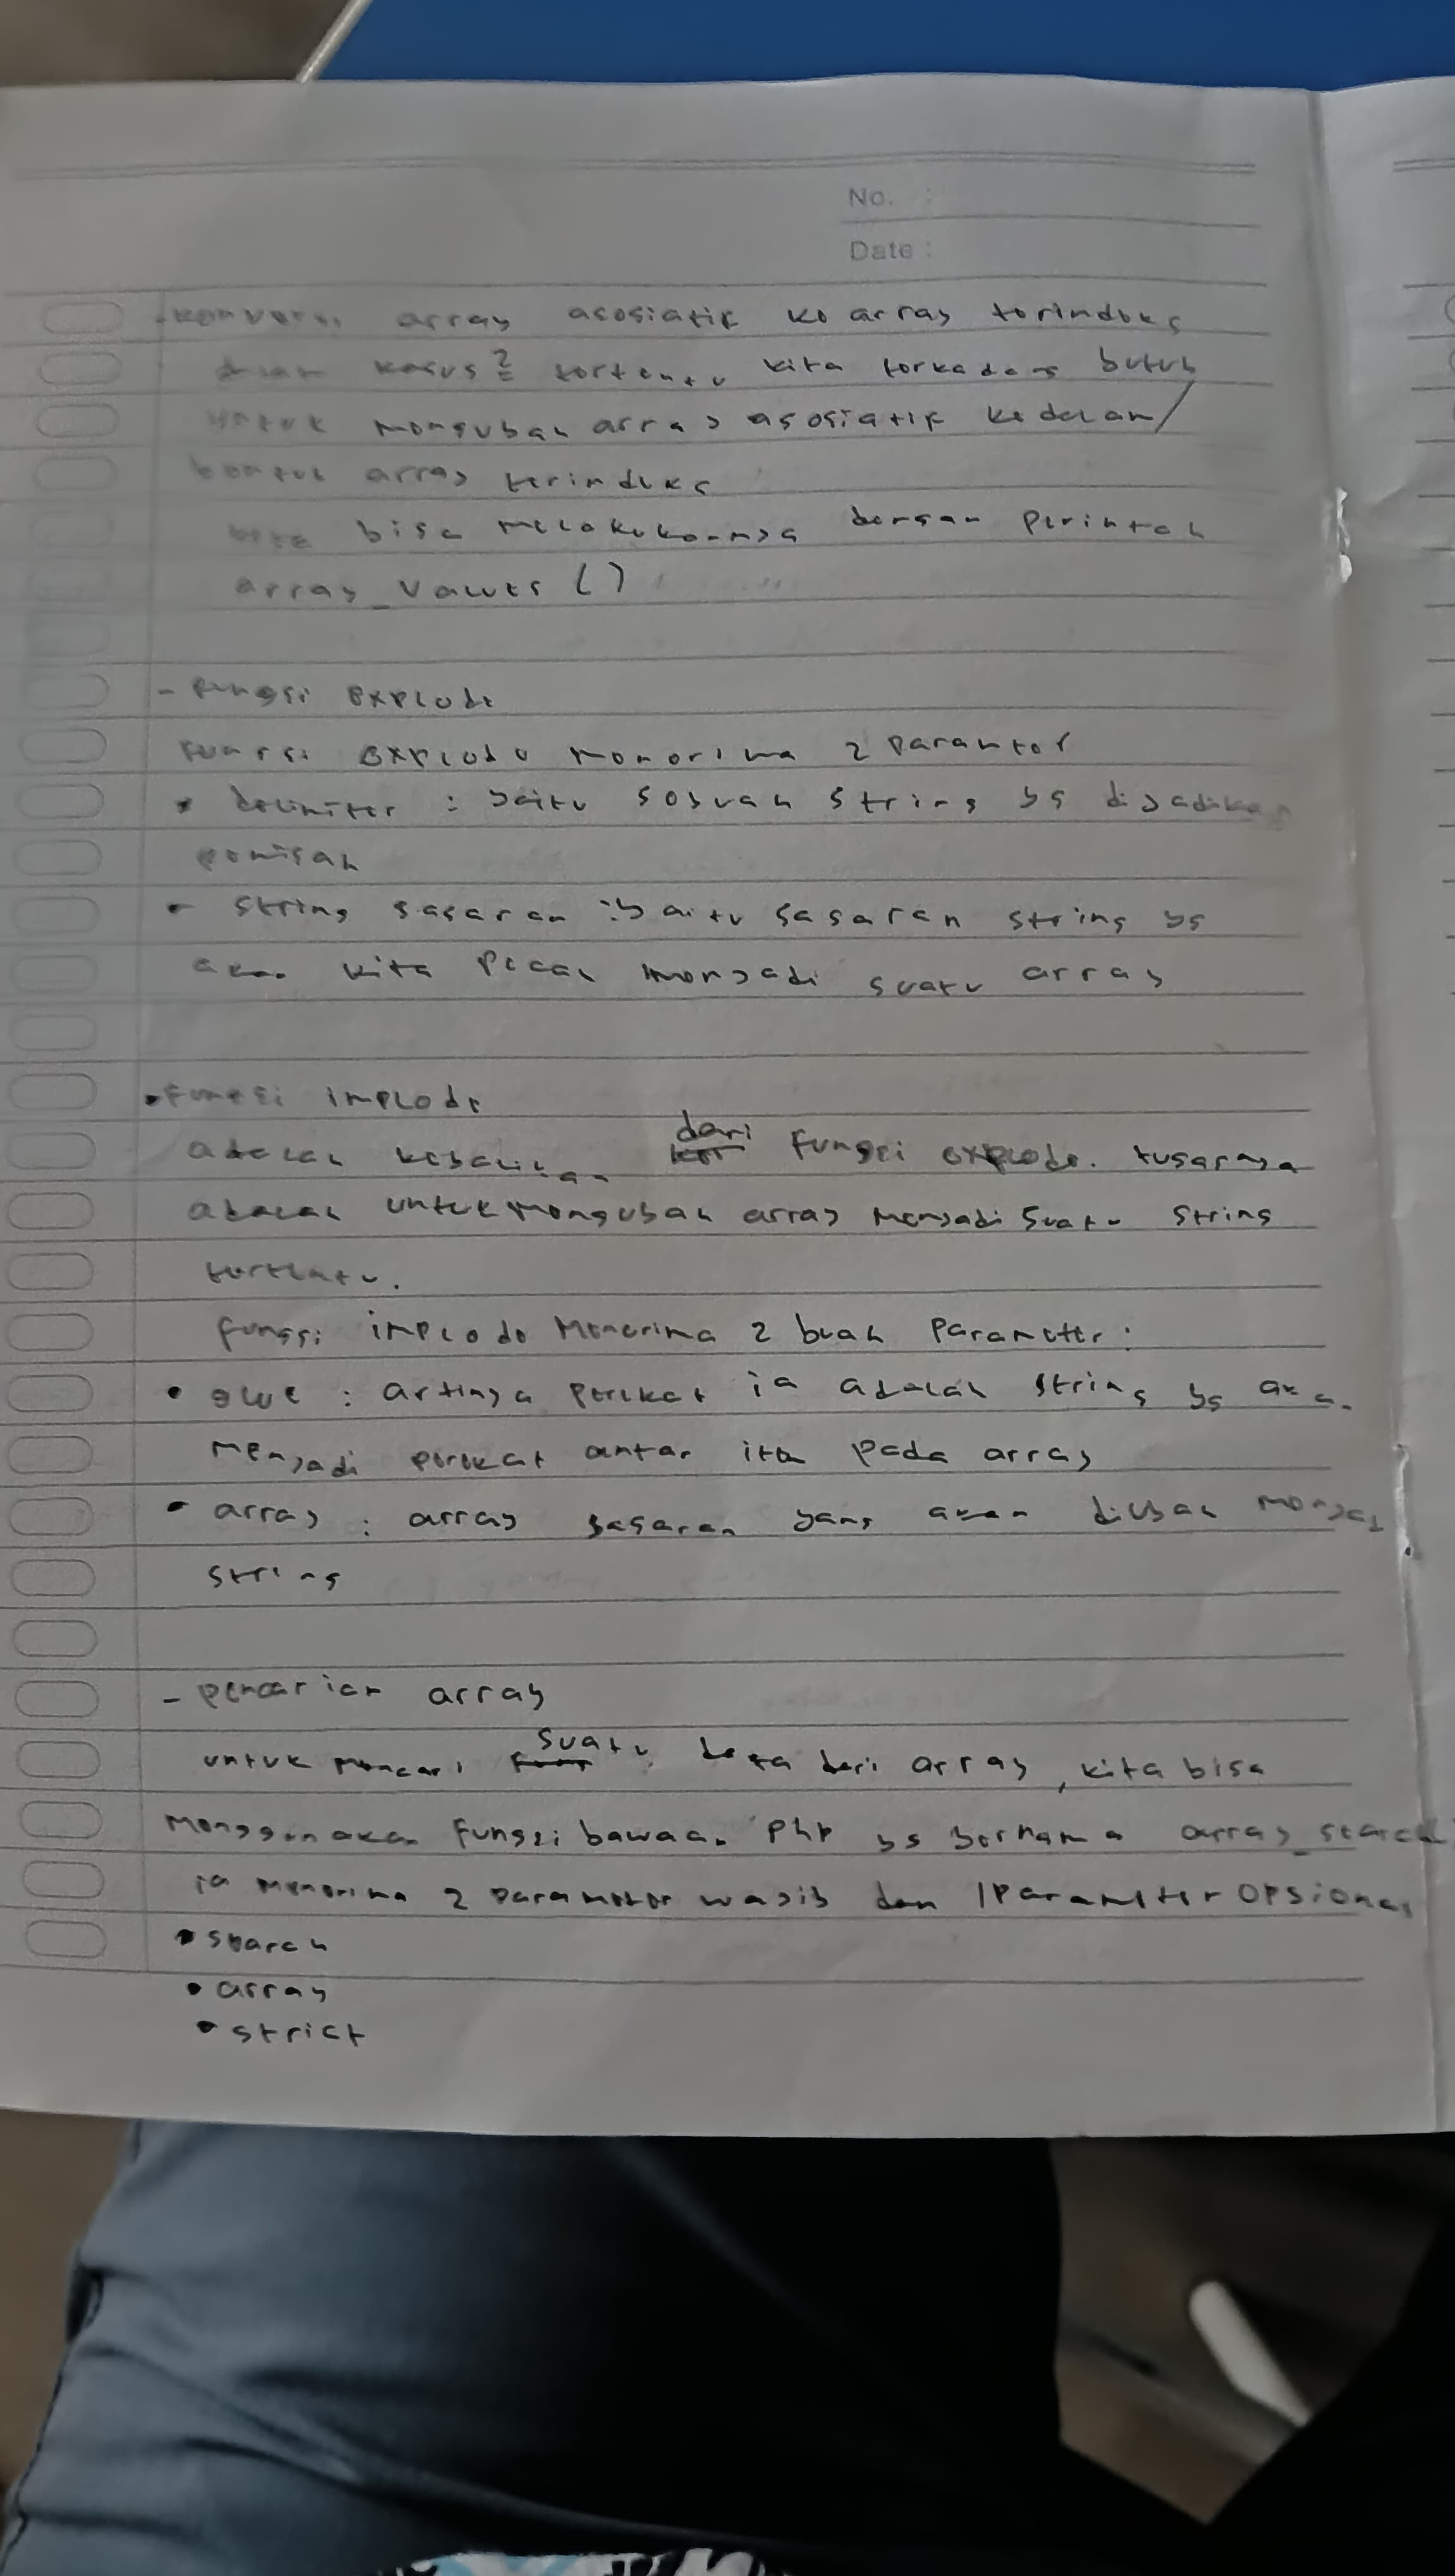 No. :
Date :
- konversi array asosiatif ke array terindeks
dalam kasus² tertentu kita terkadang butuh
untuk mengubah array asosiatif kedalam/
bentuk array terindeks
kita bisa melakukannya dengan perintah
array_values ()
- fungsi explode
fungsi explode menerima 2 parameter
• delimiter : yaitu sebuah string yg dijadikan
pemisah
• string sasaran : yaitu sasaran string yg
akan kita pecah menjadi suatu array
• fungsi implode
adalah kebalikan dari fungsi explode. tugasnya
adalah untuk mengubah array menjadi suatu string
tertentu.
fungsi implode menerima 2 buah parameter :
• glue : artinya perekat ia adalah string yg akan
menjadi perekat antar item pada array
• array : array sasaran yang akan diubah menjadi
string
- pencarian array
untuk mencari suatu data dari array, kita bisa
menggunakan fungsi bawaan php yg bernama array_search
ia menerima 2 parameter wajib dan 1 parameter opsional
• search
• array
• strict